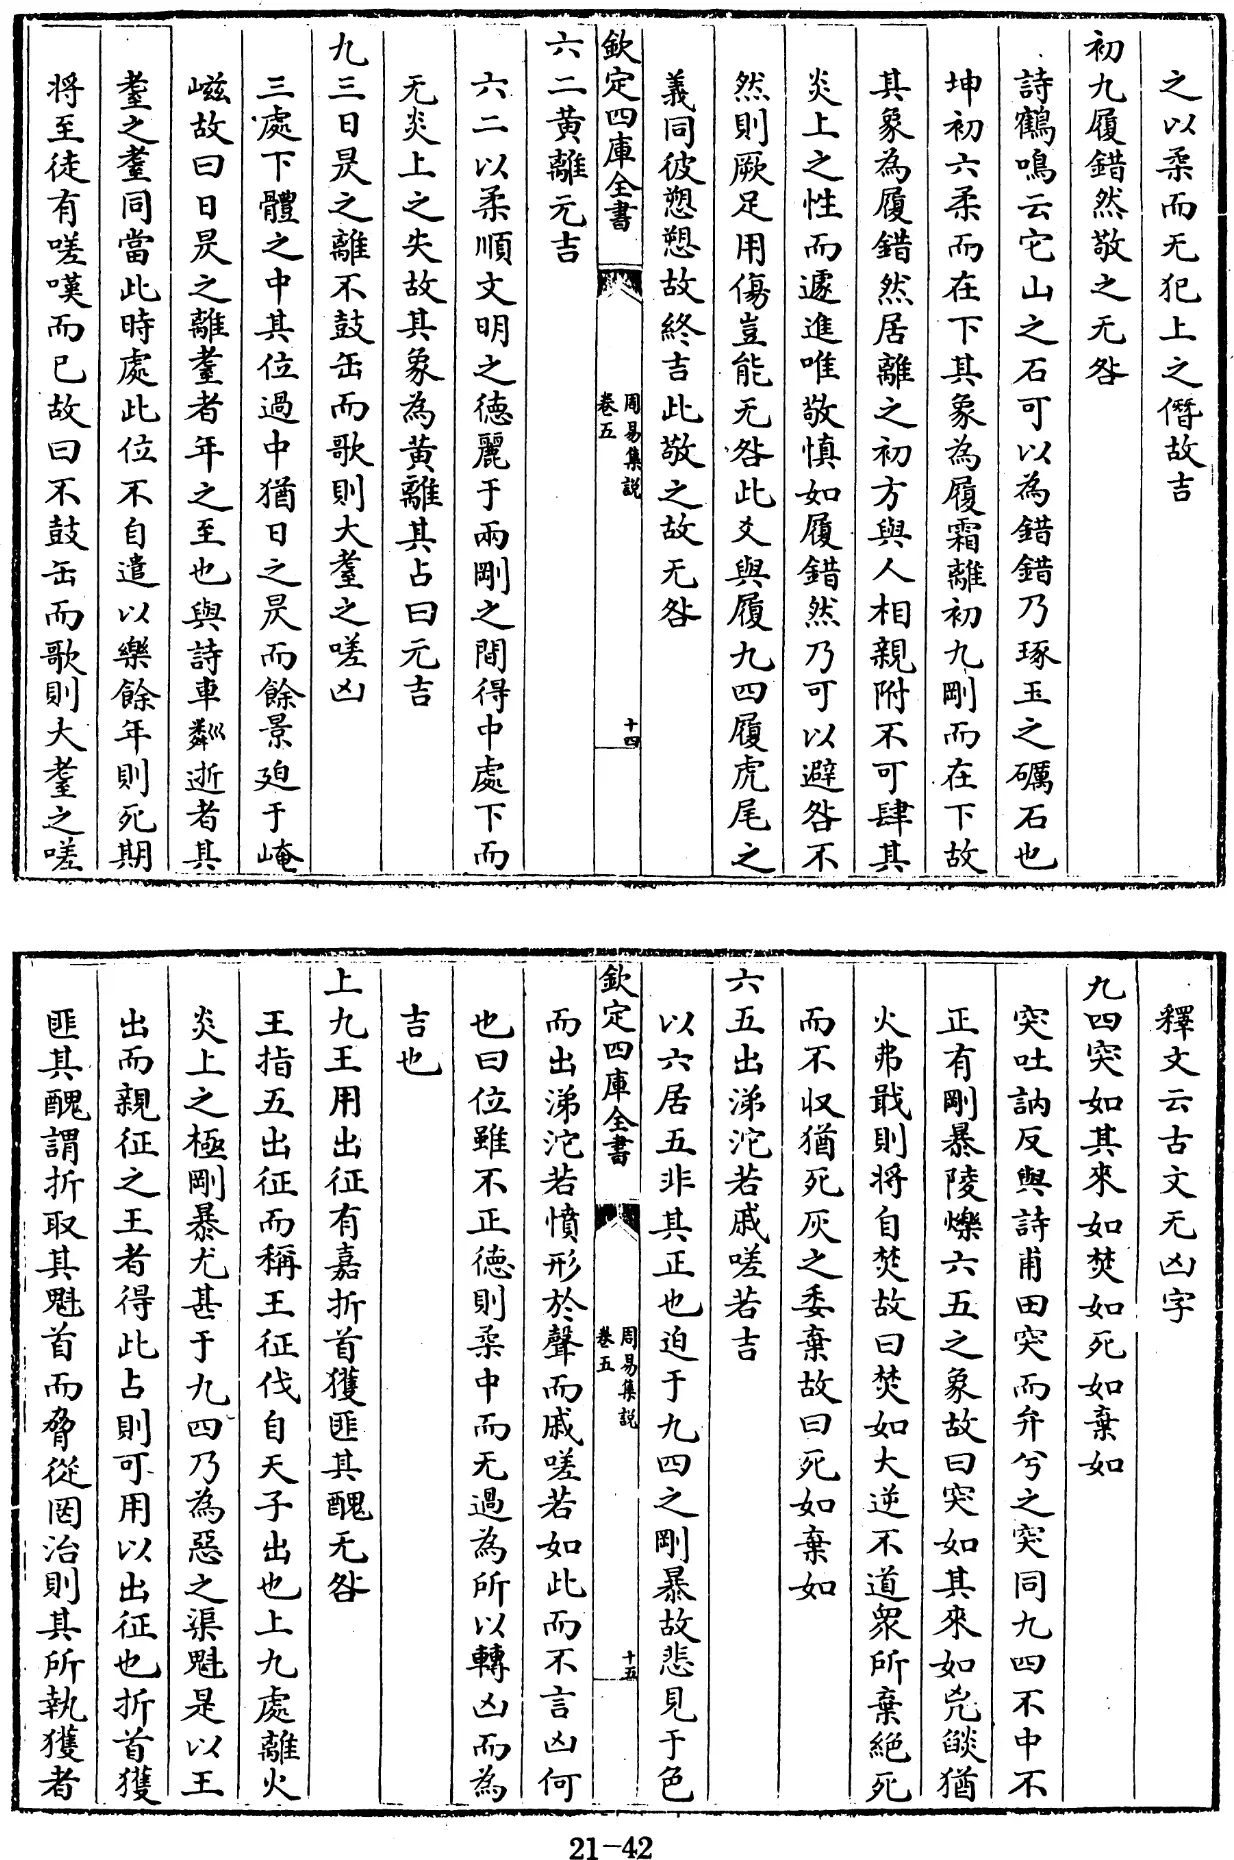 之以柔而无犯上之僭故吉
初九履錯然敬之无咎
詩鶴鳴云它山之石可以為錯錯乃琢玉之礪石也
坤初六柔而在下其象為履霜離初九剛而在下故
其象為履錯然居離之初方與人相親附不可肆其
炎上之性而遽進唯敬慎如履錯然乃可以避咎不
然則厥足用傷豈能无咎此爻與履九四履虎尾之
義同彼愬愬故終吉此敬之故无咎
欽定四庫全書
周易集說
卷五
十四
六二黃離元吉
六二以柔順文明之德麗于兩剛之間得中處下而
无炎上之失故其象為黃離其占曰元吉
九三日昃之離不鼓缶而歌則大耋之嗟凶
三處下體之中其位過中猶日之昃而餘景廹于崦
嵫故曰日昃之離耋者年之至也與詩車鄰逝者其
耋之耋同當此時處此位不自遣以樂餘年則死期
將至徒有嗟嘆而已故曰不鼓缶而歌則大耋之嗟
釋文云古文无凶字
九四突如其來如焚如死如棄如
突吐訥反與詩甫田突而弁兮之突同九四不中不
正有剛暴陵爍六五之象故曰突如其來如兇燄猶
火弗戢則將自焚故曰焚如大逆不道衆所棄絕死
而不収猶死灰之委棄故曰死如棄如
六五出涕沱若戚嗟若吉
以六居五非其正也迫于九四之剛暴故悲見于色
欽定四庫全書
周易集說
卷五
十五
而出涕沱若憤形於聲而戚嗟若如此而不言凶何
也曰位雖不正德則柔中而无過為所以轉凶而為
吉也
上九王用出征有嘉折首獲匪其醜无咎
王指五出征而稱王征伐自天子出也上九處離火
炎上之極剛暴尤甚于九四乃為惡之渠魁是以王
出而親征之王者得此占則可用以出征也折首獲
匪其醜謂折取其魁首而脅從罔治則其所執獲者
21-42